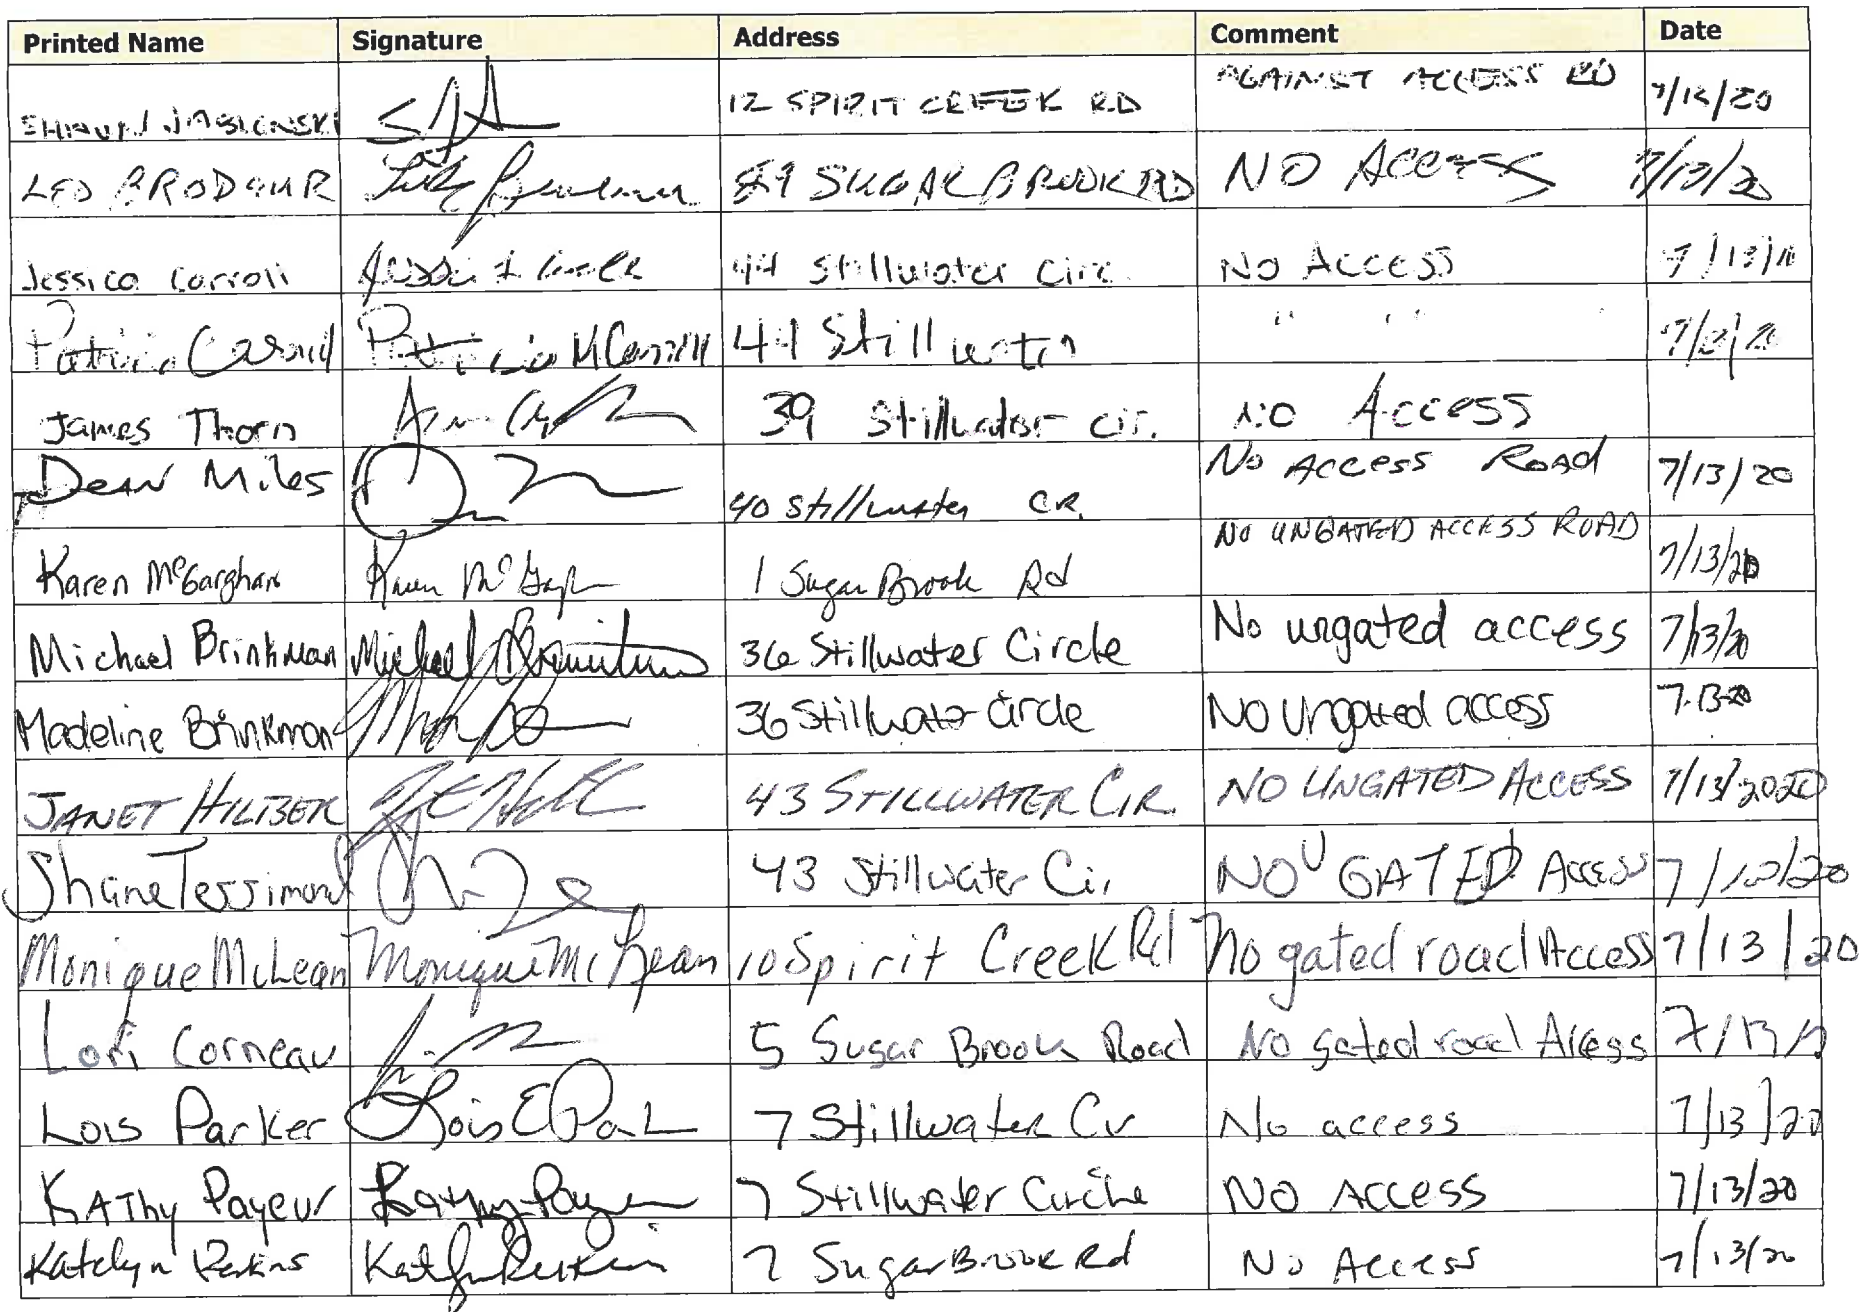 Printed Name Signature Address Comment Date
SHAUN JABLONSKI 12 SPIRIT CREEK RD AGAINST ACCESS RD 7/13/20
LEO BRODEUR SUGAR BROOK RD NO ACCESS 7/13/20
Jessica Carroll 44 Stillwater Circ. NO ACCESS 7/13/
Patricia Carroll Patricia M Carroll 44 Stillwater " " "
James Thorn 39 Stillwater cir. NO Access
Dean Miles 40 Stillwater CR. No Access Road 7/13/20
Karen McGarghan Karen 1 Sugar Brook Rd NO UNGATED ACCESS ROAD 7/13/20
Michael Brinkman Michael Brinkman 36 Stillwater Circle No ungated access 7/13/20
Madeline Brinkman 36 Stillwater Circle NO Ungated access 7-13-20
JANET HILTBER 43 STILLWATER CIR. NO UNGATED ACCESS 7/13/2020
Shane Tessimond 43 Stillwater Cir, NO GATED Access
Monique McLean Monique McLean 10 Spirit Creek Rd No gated road Access 7/13/20
Lori Corneau 5 Sugar Brook Road No gated road Access 7/13/
Lois Parker Lois E Par 7 Stillwater Cir No access 7/13/20
KATHy Payeur Kathy Payeur 7 Stillwater Circle NO ACCESS 7/13/20
Katelyn Perkins 7 Sugar Brook Rd No Access 7/13/20